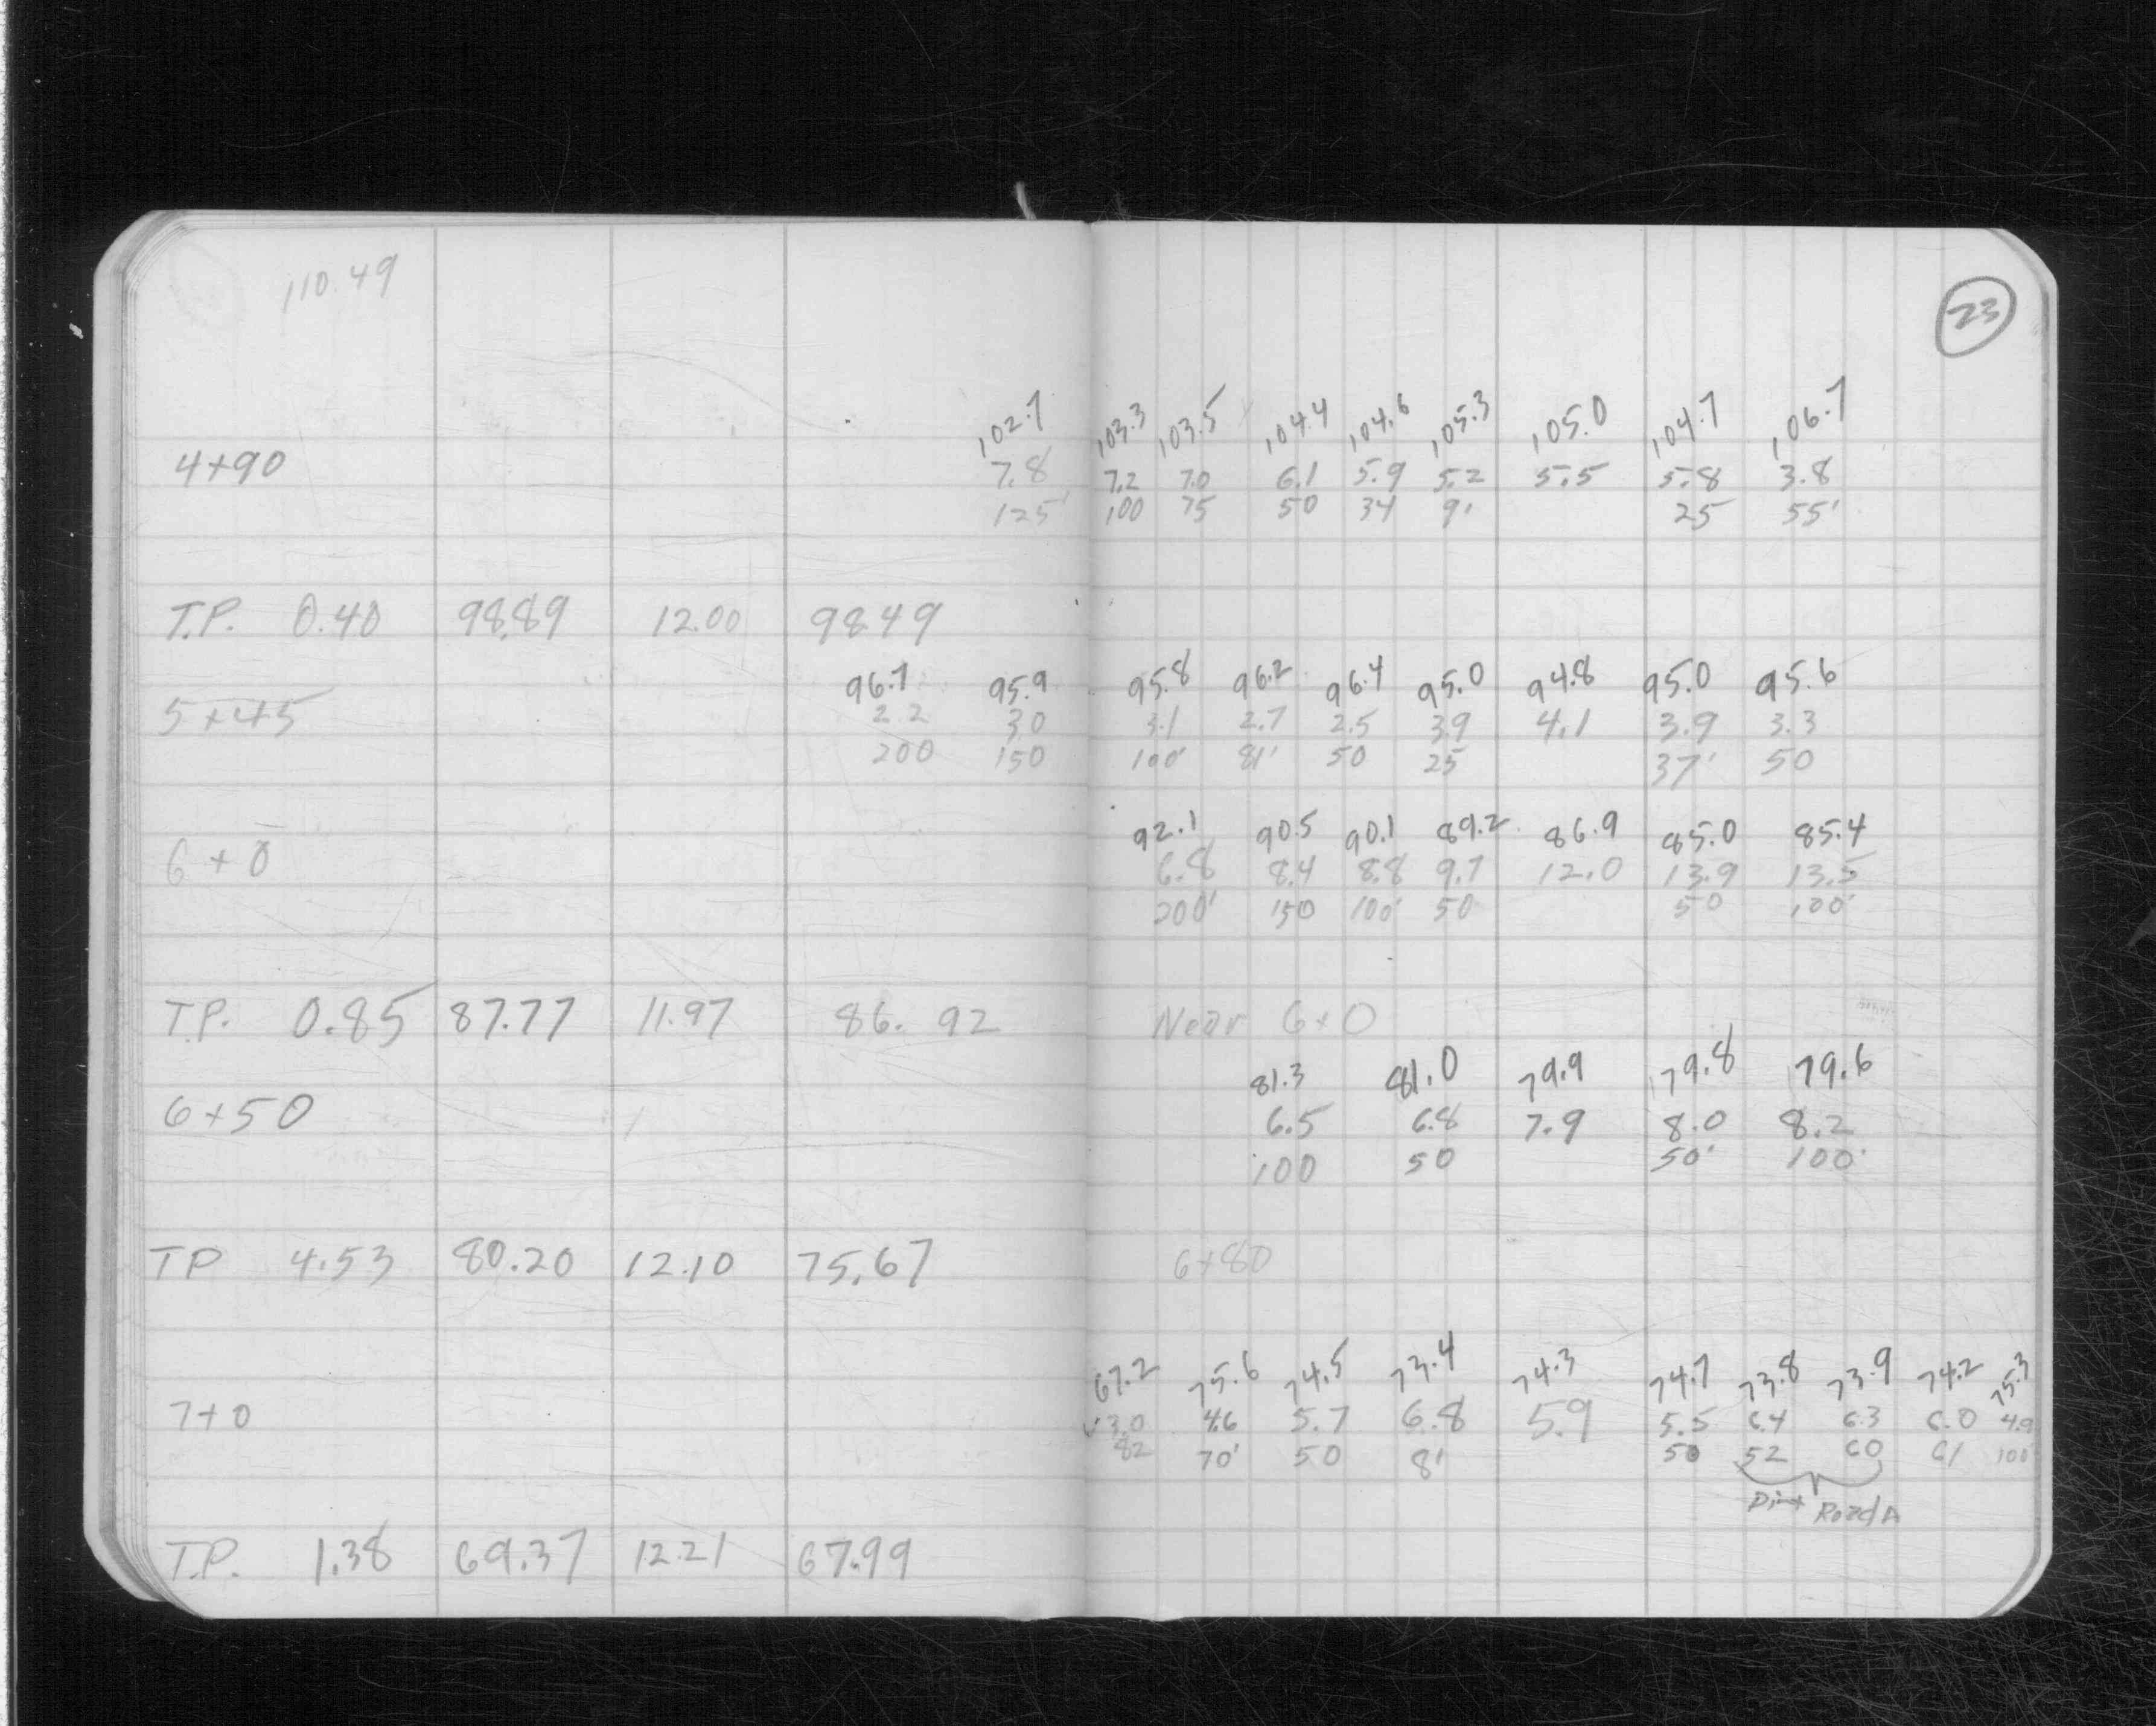 110.49
23
102.7 103.3 103.5 104.4 104.6 105.3 105.0 104.7 106.7
4+90 7.8 7.2 7.0 6.1 5.9 5.2 5.5 5.8 3.8
125' 100 75 50 34 9' 25 55'
T.P. 0.40 98.89 12.00 98.49
96.7 95.9 95.8 96.2 96.4 95.0 94.8 95.0 95.6
5+45 2.2 3.0 3.1 2.7 2.5 3.9 4.1 3.9 3.3
200 150 100' 81' 50 25 37' 50
92.1 90.5 90.1 89.2 86.9 85.0 85.4
6+0 6.8 8.4 8.8 9.7 12.0 13.9 13.5
200' 150 100' 50 50 100'
T.P. 0.85 87.77 11.97 86.92 Near 6+0
81.3 81.0 79.9 79.8 79.6
6+50 6.5 6.8 7.9 8.0 8.2
100 50 50' 100'
TP 4.53 80.20 12.10 75.67 6+80
67.2 75.6 74.5 73.4 74.3 74.7 73.8 73.9 74.2 75.3
7+0 3.0 4.6 5.7 6.8 5.9 5.5 6.4 6.3 6.0 4.9
82 70' 50 8' 50 52 60 61 100
Dirt Road A
T.P. 1.38 69.37 12.21 67.99